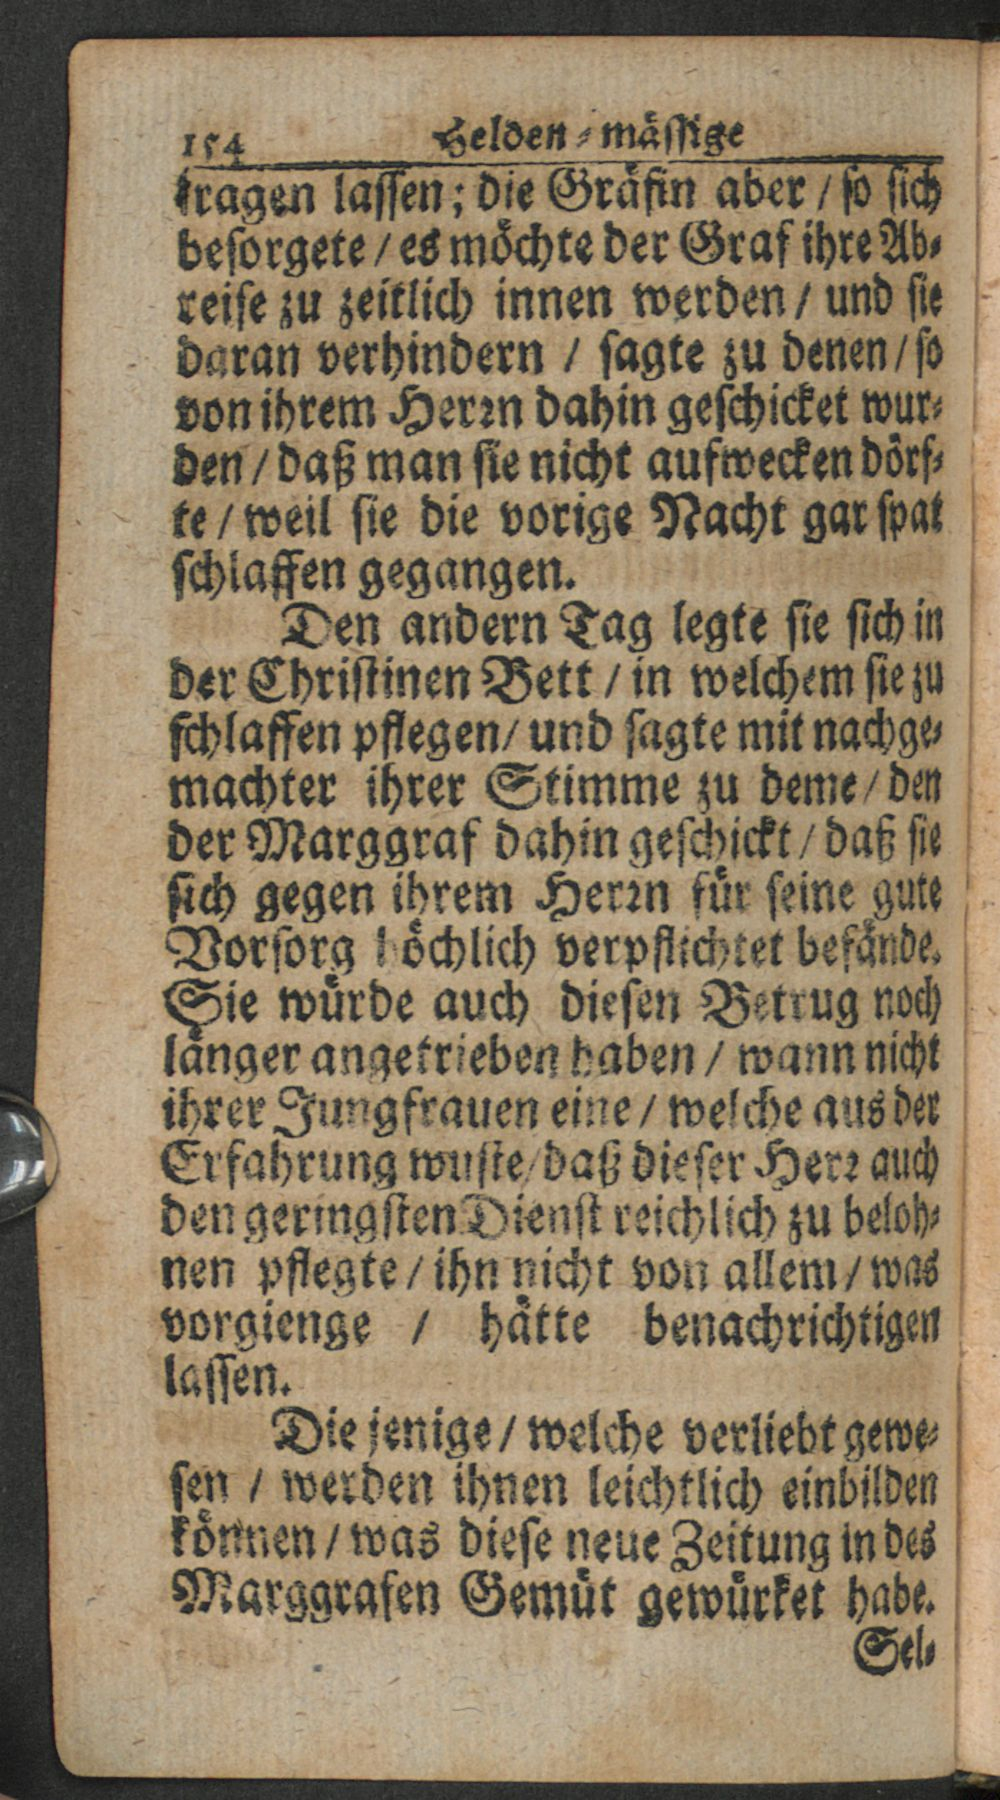 154 Helden-mäſſige
tragen laſſen; die Gräfin aber / ſo ſich
beſorgete / es möchte der Graf ihre Ab-
reiſe zu zeitlich innen werden / und ſie
daran verhindern / ſagte zu denen / ſo
von ihrem Herꝛn dahin geſchicket wur-
den / daß man ſie nicht aufwecken dörf-
te / weil ſie die vorige Nacht gar ſpat
ſchlaffen gegangen.
Den andern Tag legte ſie ſich in
der Chriſtinen Bett / in welchem ſie zu
ſchlaffen pflegen / und ſagte mit nachge-
machter ihrer Stimme zu deme / den
der Marggraf dahin geſchickt / daß ſie
ſich gegen ihrem Herꝛn für ſeine gute
Vorſorg höchlich verpflichtet befände.
Sie würde auch dieſen Betrug noch
länger angetrieben haben / wann nicht
ihrer Jungfrauen eine / welche aus der
Erfahrung wuſte / daß dieſer Herꝛ auch
den geringſten Dienſt reichlich zu beloh-
nen pflegte / ihn nicht von allem / was
vorgienge / hätte benachrichtigen
laſſen.
Die jenige / welche verliebt gewe-
ſen / werden ihnen leichtlich einbilden
können / was dieſe neue Zeitung in des
Marggrafen Gemüt gewürket habe.
Sel-